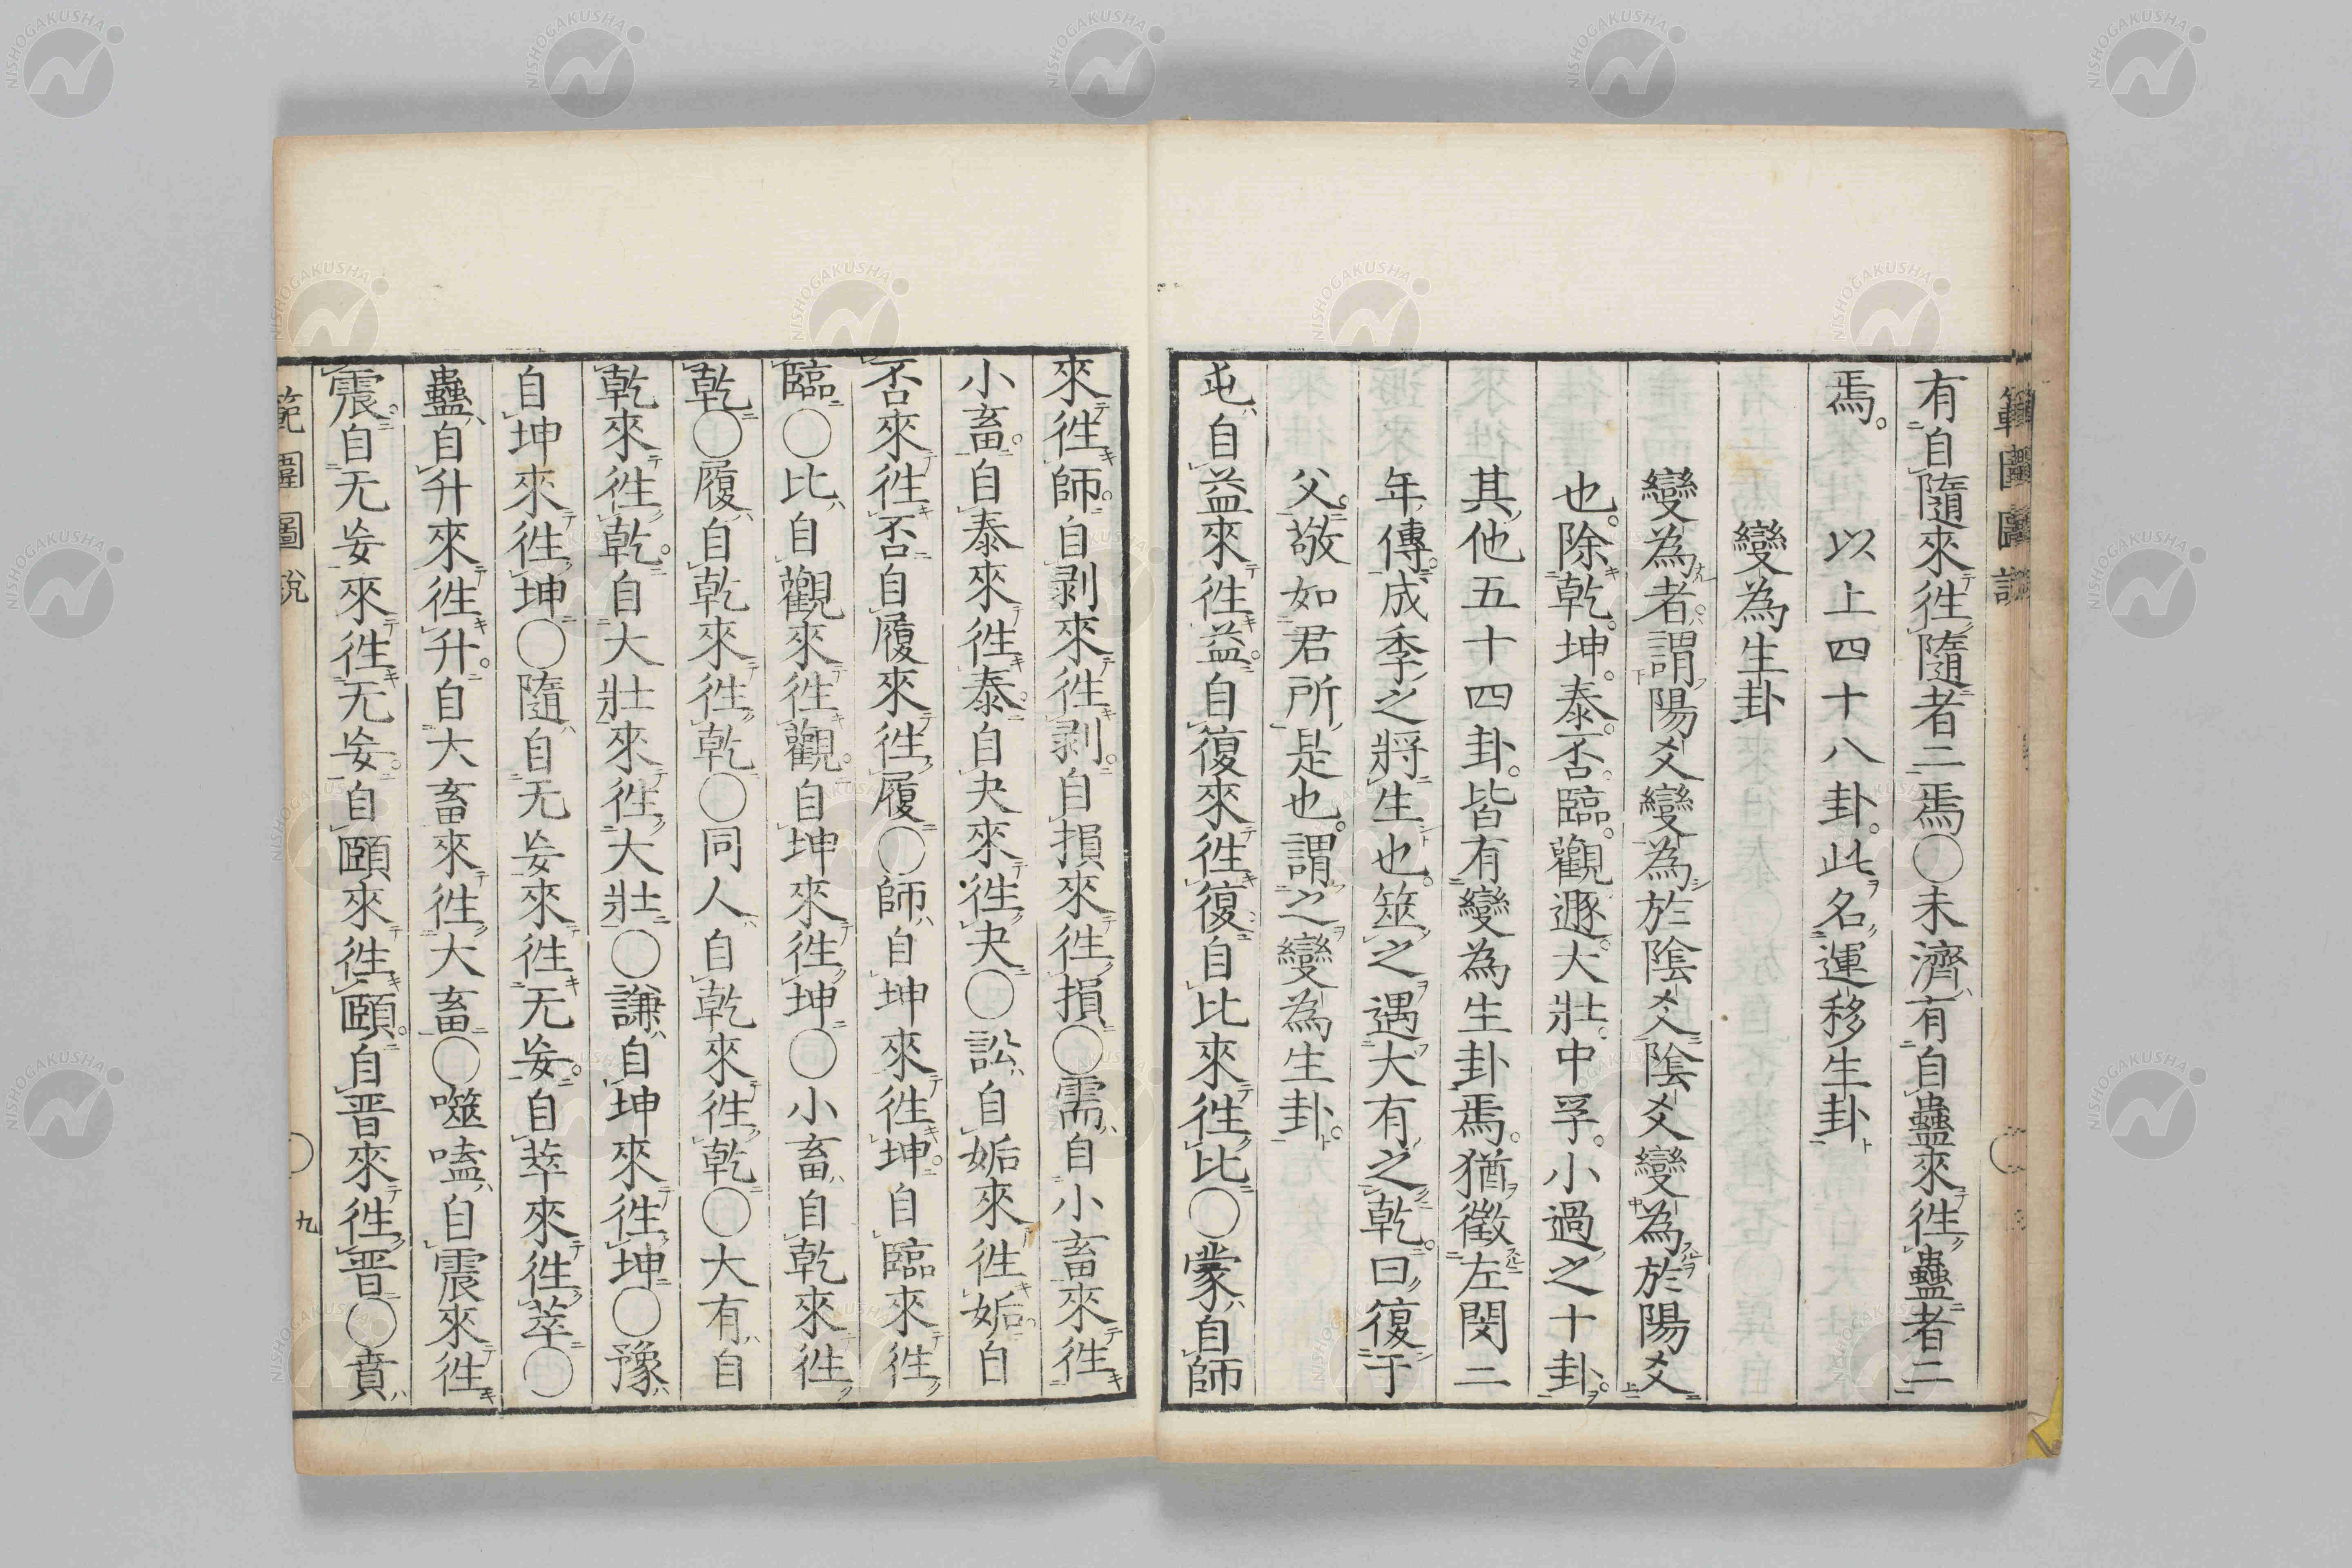 有自隨來徃隨者二焉○未濟有自蠱來徃蠱者二
焉。以上四十八卦。此名運移生卦
變為生卦
變為者。謂陽爻變為於陰爻陰爻變為於陽爻
也。除乾。坤。泰。否。臨。觀。遯。大壯。中孚。小過之十卦。
其他五十四卦。皆有變為生卦焉。猶徵左閔二
年傳。成季之將生也。筮之遇大有之乾。曰復于
父。敬如君所是也。謂之變為生卦。
屯自益來徃益。自復來徃復。自比來徃比○蒙自師
來徃師。自剥來徃剥。自損來徃損○需自小畜來徃
小畜。自泰來徃泰。自夬來徃夬○訟自姤來徃姤。自
否來徃否。自履來徃履○師自坤來徃坤。自臨來徃
臨○比自觀來徃觀。自坤來徃坤○小畜自乾來徃
乾○履自乾來徃乾○同人自乾來徃乾○大有自
乾來徃乾。自大壯來徃大壯○謙自坤來徃坤○豫
自坤來徃坤○隨自无妄來徃无妄。自萃來徃萃○
蠱自升來徃升。自大畜來徃大畜○噬嗑自震來徃
震。自无妄來徃无妄。自頤來徃頤。自晋來徃晋○賁
範圍圖說
九
NISHOGAKUSHA